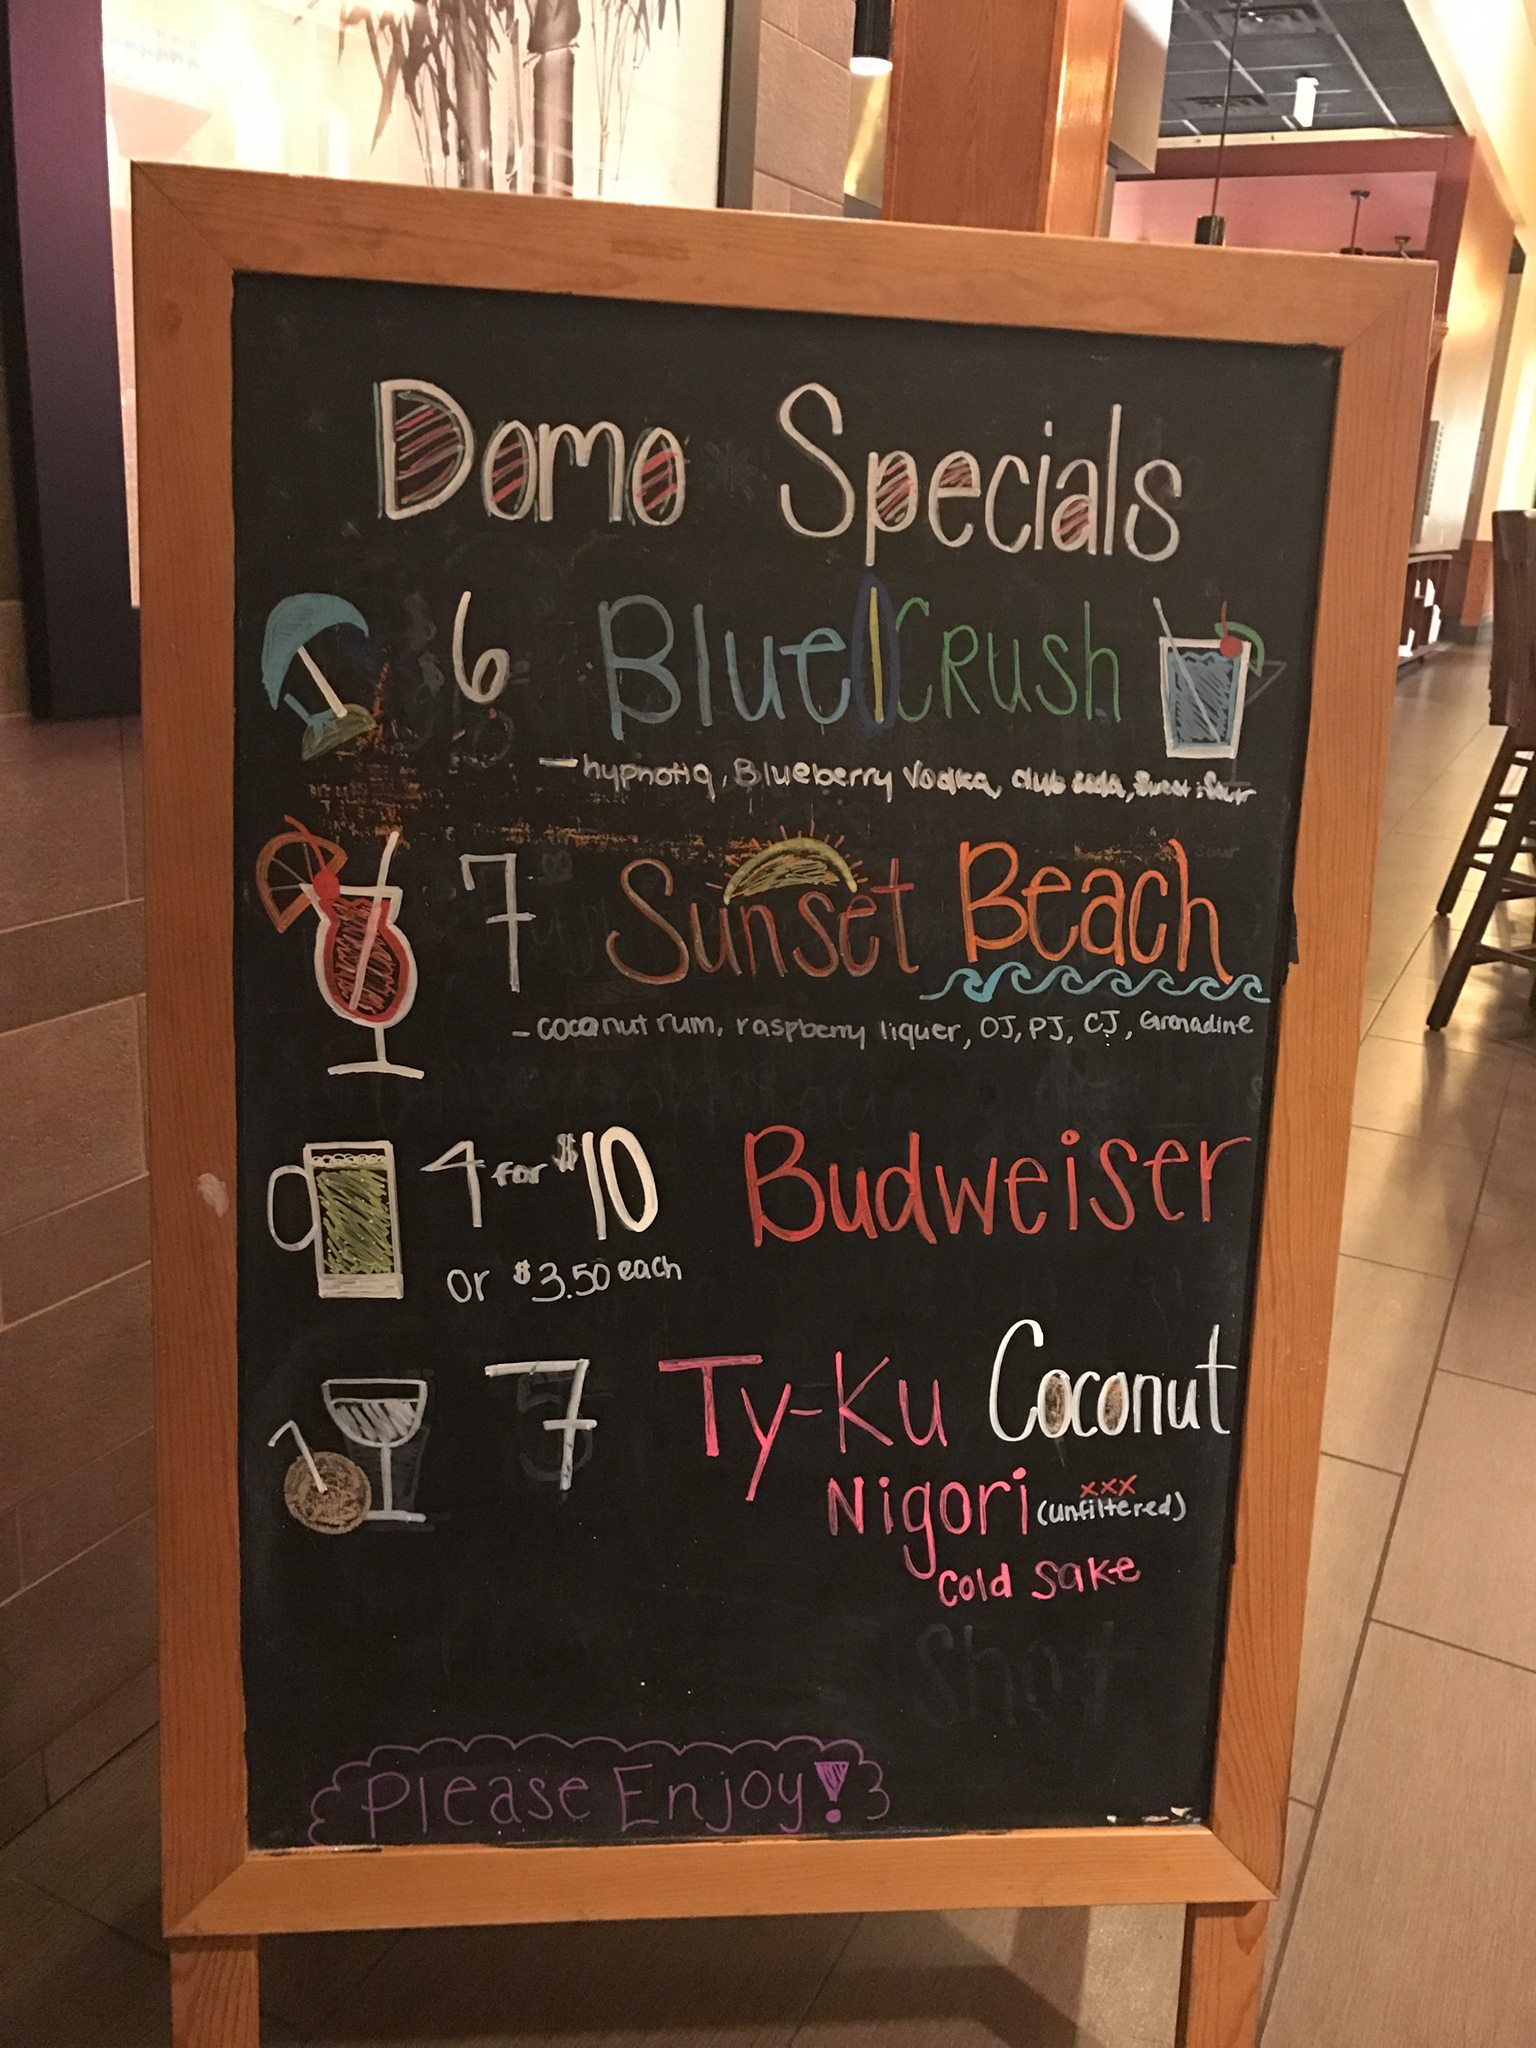 Domo Specials
6 Blue Crush
- hypnotiq, Blueberry Vodka, club soda, Sweet & Sour
7 Sunset Beach
- coconut rum, raspberry liquer, OJ, PJ, CJ, Grenadine
4 for $10 Budweiser
or $3.50 each
7 Ty-Ku Coconut
xxx
Nigori (unfiltered)
Cold Sake
Shot
Please Enjoy!